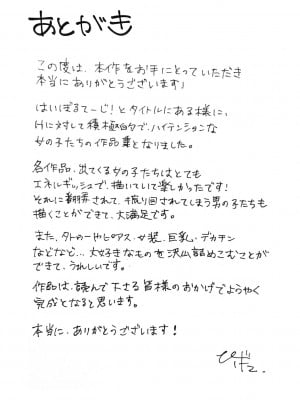 あとがき
この度は、本作をお手にとっていただき
本当にありがとうございます」
はいぼるてーじ!とタイトルにある様に、
Hに対して積極的で、ハイテンションな
女の子たちの作品集となりました。
各作品、出てくる女の子たちはとても
エネルギッシュで、描いていて楽しかったです!
それに翻弄されて、振り回されてしまう男の子たちも
描くことができて、大満足です。
また、タトゥーやピアス・女装、巨乳・デカチン
などなど... 大好きなものを沢山詰めこむことが
できて、うれしいです。
作品は、読んで下さる皆様のおかげでようやく
完成となると思います。
本当に、ありがとうございます!